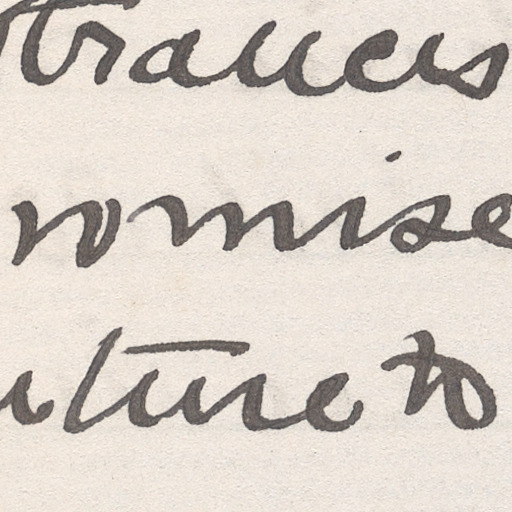 Francis
romise
uture to